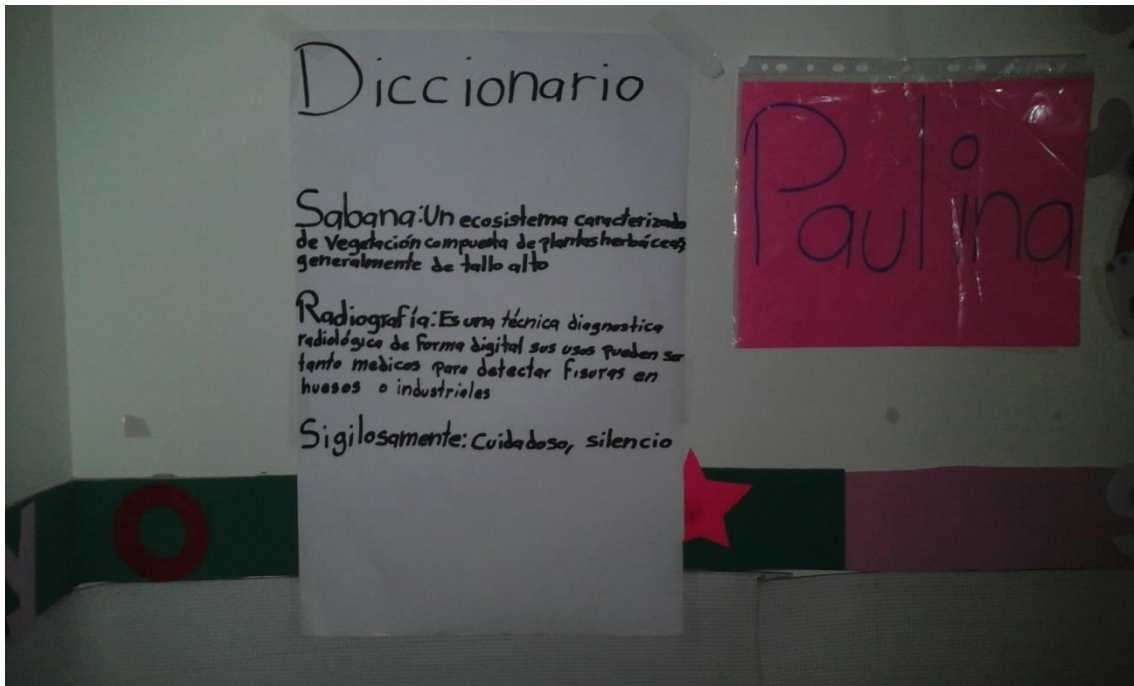 Diccionario
Sabana: Un ecosistema caracterizado
de Vegetación compuesta de plantas herbáceas,
generalmente de tallo alto
Radiografía: Es una técnica diagnostica
radiológica de forma digital sus usos pueden ser
tanto medicos para detectar fisuras en
huesos o industriales
Sigilosamente: Cuidadoso, silencio
Paulina